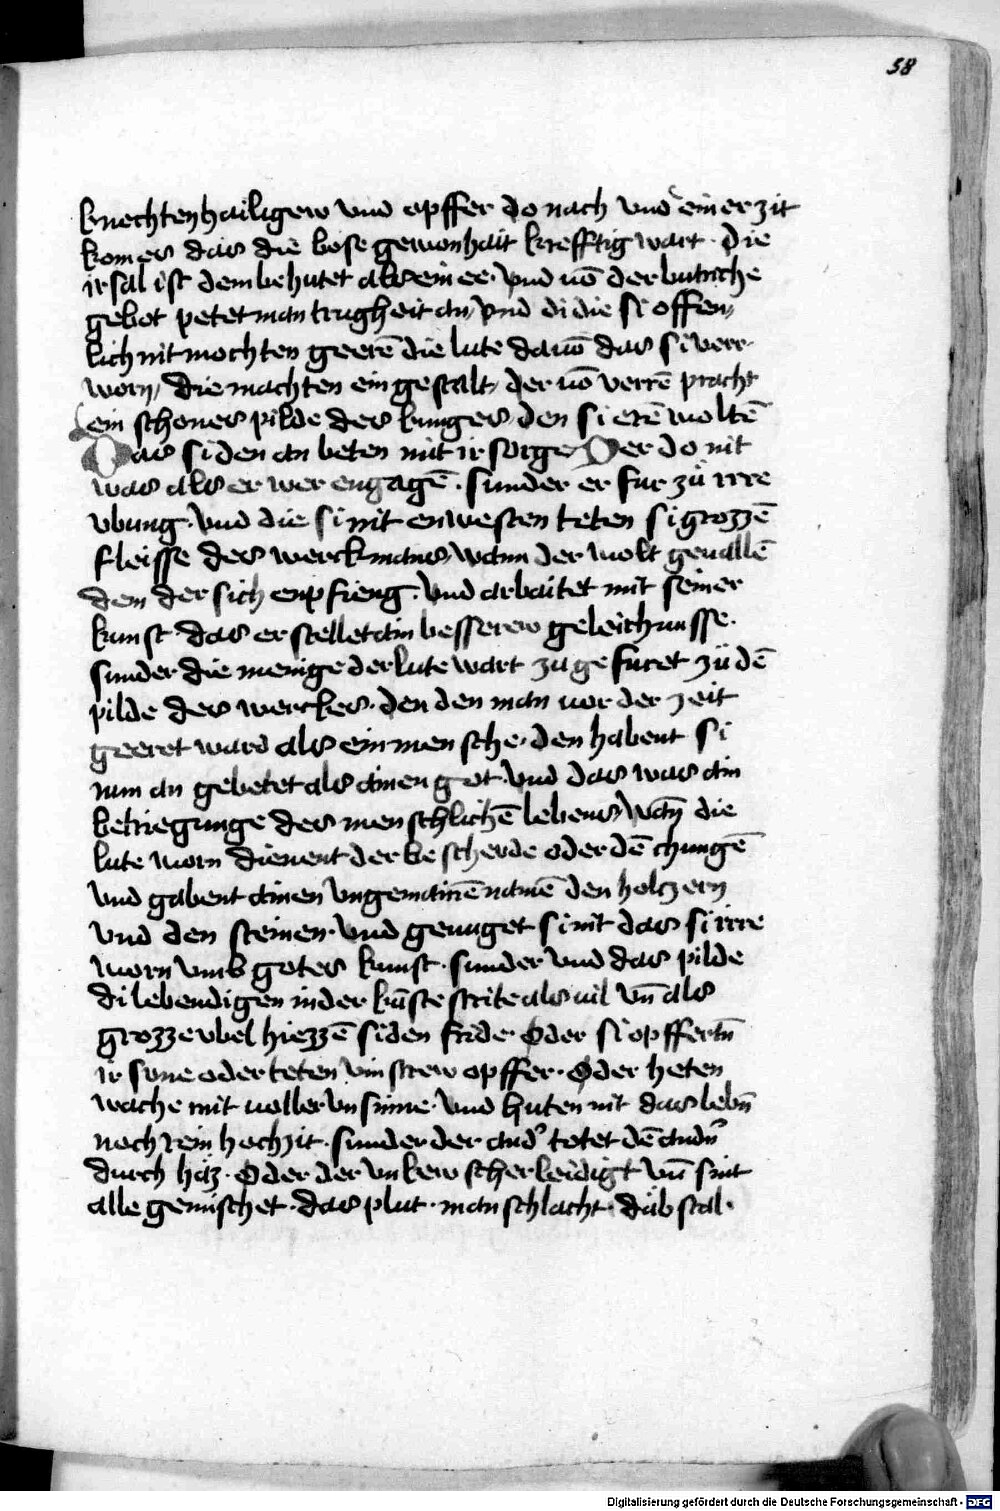 58
knechten hailigew vnd opffer do nach vnd ein er zit
kom es das die böse gewonhait krefftig wart · die
irsal ist dem behutet als ein ee · vnd uō der butrche
gebot petet man trugheit an / vnd di die si offen,,
lich nit mochten geerē die lute dauō das si verr·
worn / die machten ein gestalt / der uō verrē pracht
ein schones pilde des kunges den si erē woltē
Das si den an beten mit ir sorge Der do nit
was als er wer engagē · sunder er fur zů irre
vbung · vnd die si nit enwesten teten si grozzē
fleisse des werckmans / wann der wolt geuallē
dem der sich enpfieng · vnd arbaitet mit seiner
kunst das er stellet ain besserew geleichnusse·
sunder die menige der lute wart zu gefuret zů dē
pilde des werckes · den den man uor der zeit
geeret ward als ein mensche · den habent si
nun an gebetet als ainen got · vnd das was ain
betriegunge des menschlichē lebens / wañ die
lute worn dienent der bescheide oder dē chungē
vnd gabent ainen vngemainē namē den holtzern
vnd den steinen · vnd genuget si nit das si irre
worn vmb gotes kunst · sunder vnd das pilde
di lebendigen in der kūste strite als uil vn̄ als
grozze vbel hiezzē si den fride · Oder si opffertn̄
ir sone oder teten vinstrew opffer · Oder heten
wache mit uoller vnsinne · vnd huten nit das lebn̄
noch rein hochzit · sunder der and' totet dē andn̄
durch haz · Oder der vnkewscher leidigt vn̄ sint
alle gemischet · das plut · manschlacht · däbstal·
Digitalisierung gefördert durch die Deutsche Forschungsgemeinschaft - DFG